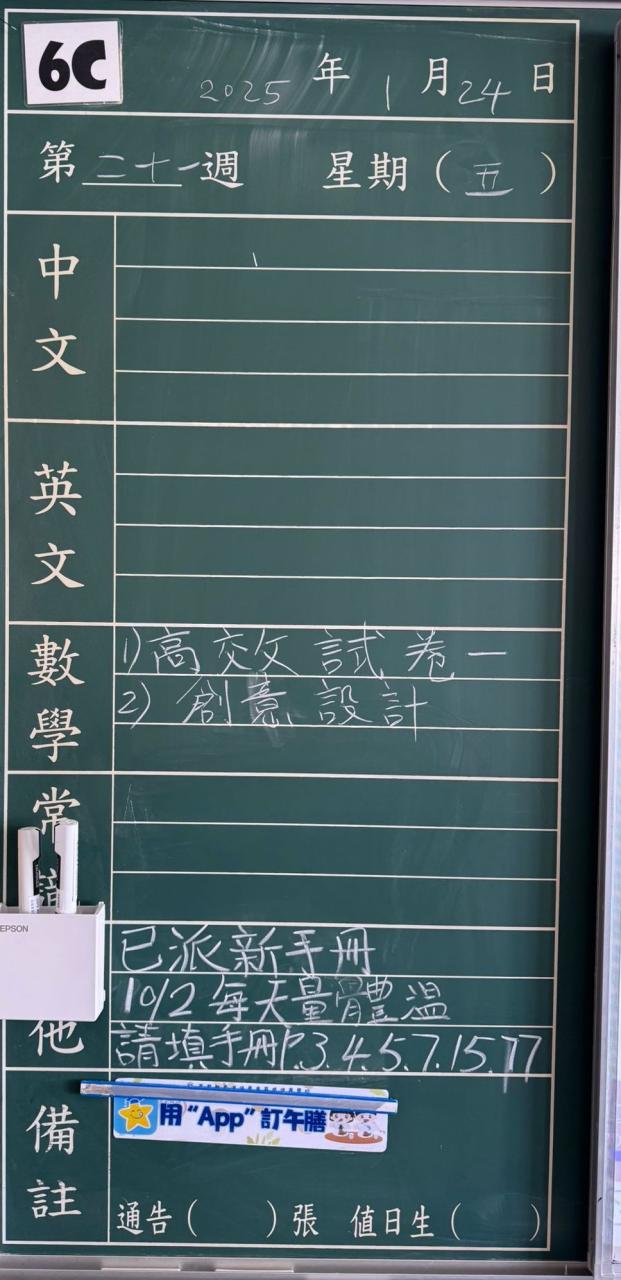 6C
2025 年 1 月 24 日
第 二十一 週 星期 ( 五 )
中文
英文
數學
1) 高效 試卷一
2) 創意設計
常
EPSON
已派新手冊
10/2 每天量體溫
他
請填手冊P.3.4.5.7.15.17
備註
用“App”訂午膳
通告 ( ) 張 值日生 ( )